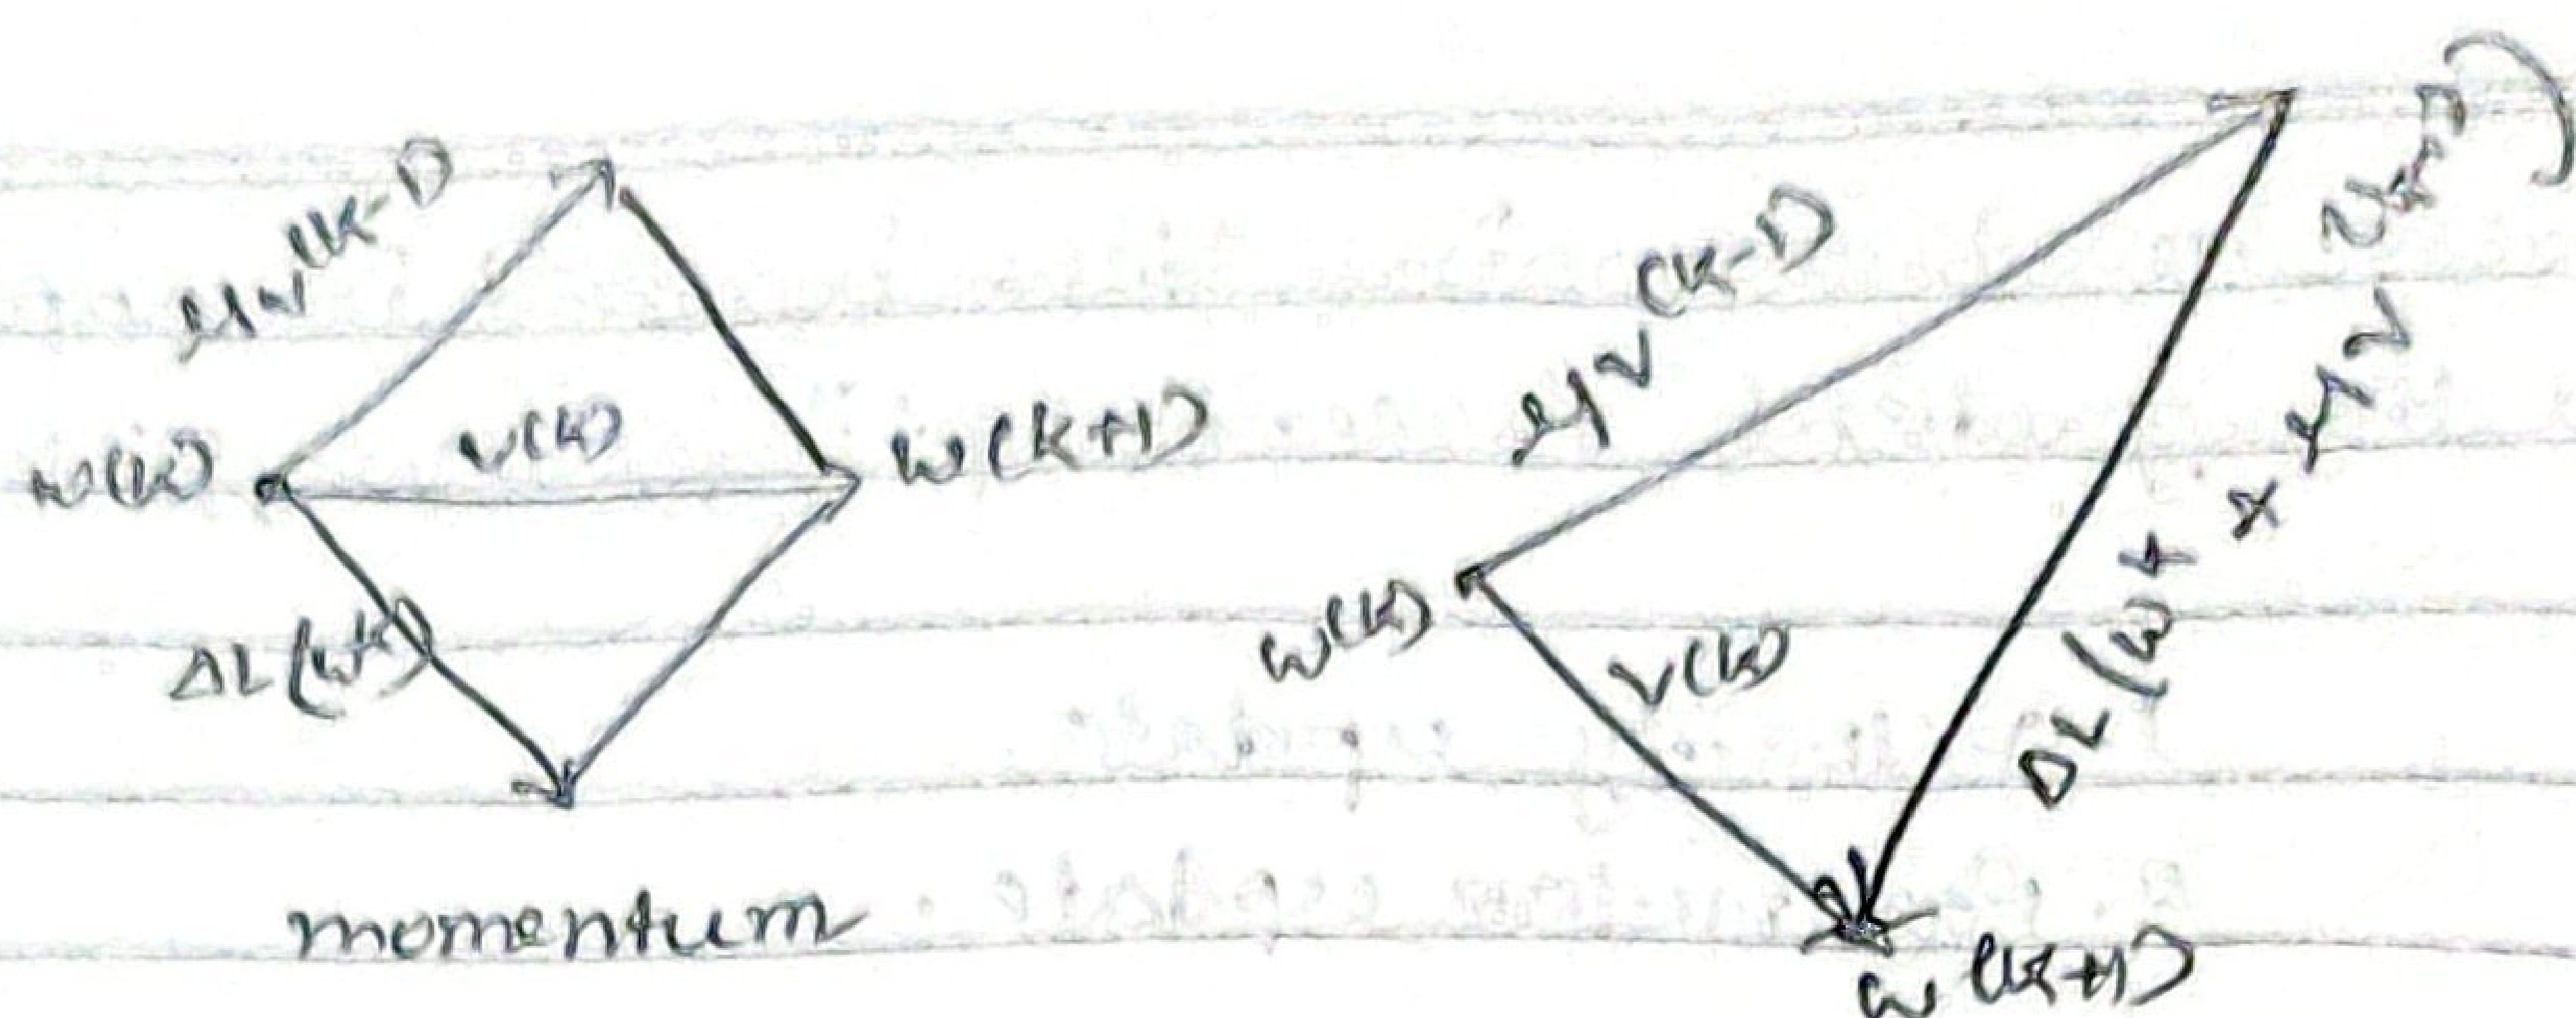 μv(k-1)
w(k)
v(k)
w(k+1)
ΔL(wk)
momentum
μv(k-1)
w(k)
v(k)
w(k+1)